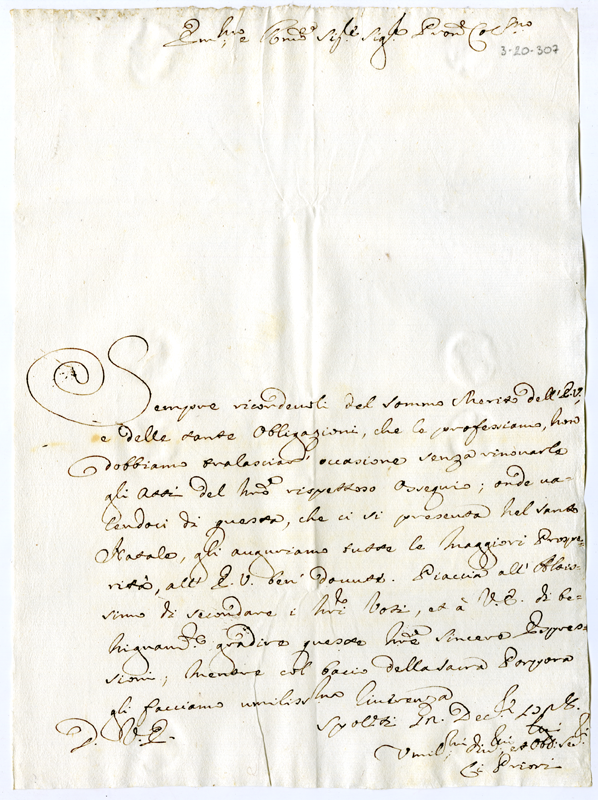 Em.mo e Rmo Sig.r Sig.r Pron Col.mo
3-20-307
Sempre ricordevoli del sommo Merito dell' E.V.
e delle tante Obligazioni, che le professiamo, non
dobbiamo tralasciar' occasione senza rinovarle
gli Atti del nro rispettoso Ossequio; onde va-
lendoci di questa, che ci si presenta nel santo
Natale, gli auguriamo tutte le Maggiori Prospe-
rità, all' E. V. ben' dovute. Piaccia all' Altis-
simo di secondare i nri Voti, et à V. E. di be-
nignam.e gradire queste nre sincere Espres-
sioni; mentre col bacio della Sacra Porpora
gli facciamo umilissima Riverenza
D. V. E. Spoleti Dec.
Umil.mi et Obb.
Li Priori